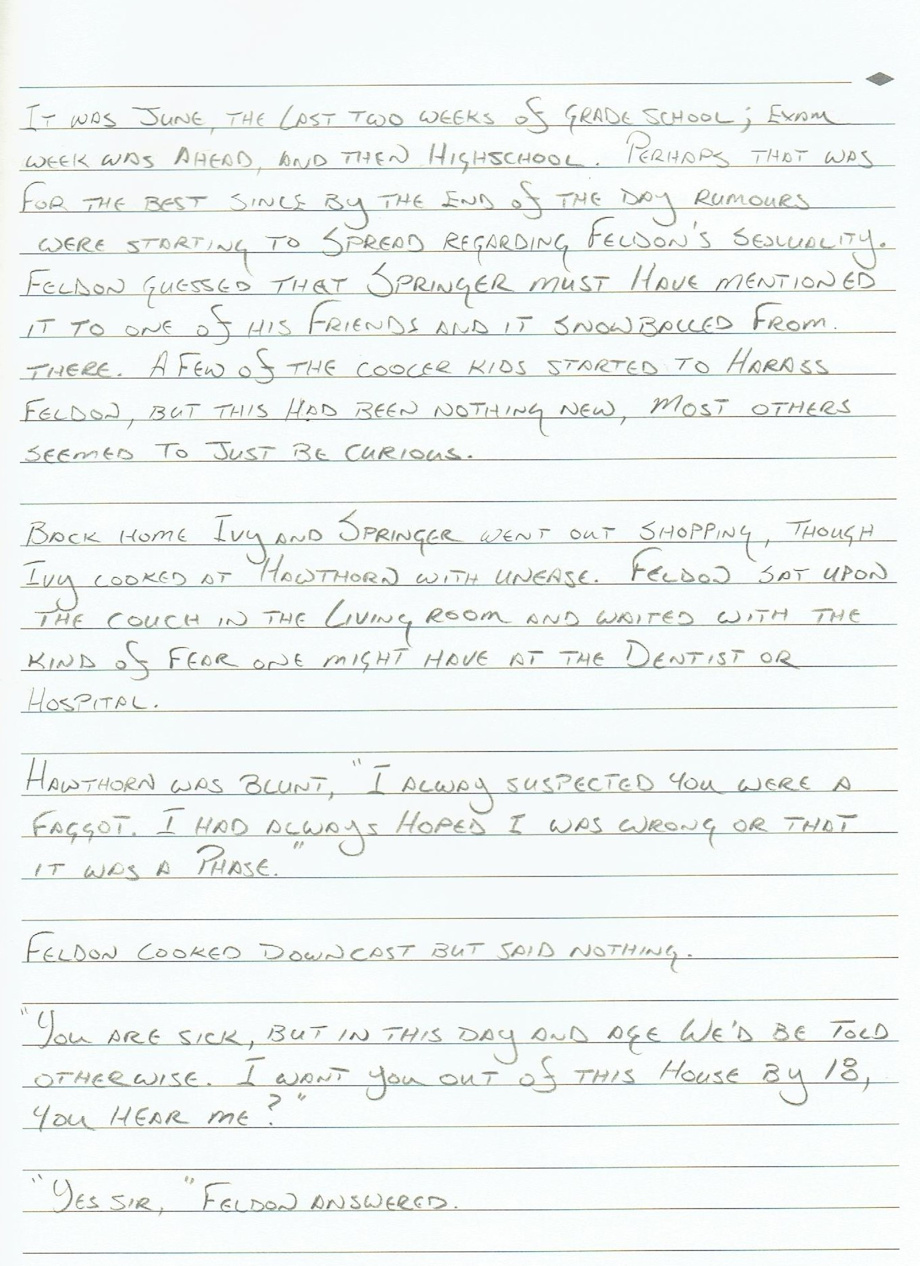 It was June, the last two weeks of grade school; exam
week was ahead, and then highschool. Perhaps that was
for the best since by the end of the day rumours
were starting to spread regarding Feldon's sexuality.
Feldon guessed that Springer must have mentioned
it to one of his friends and it snowballed from.
there. A few of the cooler kids started to harass
Feldon, but this had been nothing new, most others
seemed to just be curious.
Back home Ivy and Springer went out shopping, though
Ivy looked at Hawthorn with unease. Feldon sat upon
the couch in the living room and waited with the
kind of fear one might have at the dentist or
hospital.
Hawthorn was blunt, "I alway suspected you were a
faggot. I had always hoped I was wrong or that
it was a phase."
Feldon looked downcast but said nothing.
"You are sick, but in this day and age we'd be told
otherwise. I want you out of this house by 18,
you hear me?"
"Yes sir," Feldon answered.